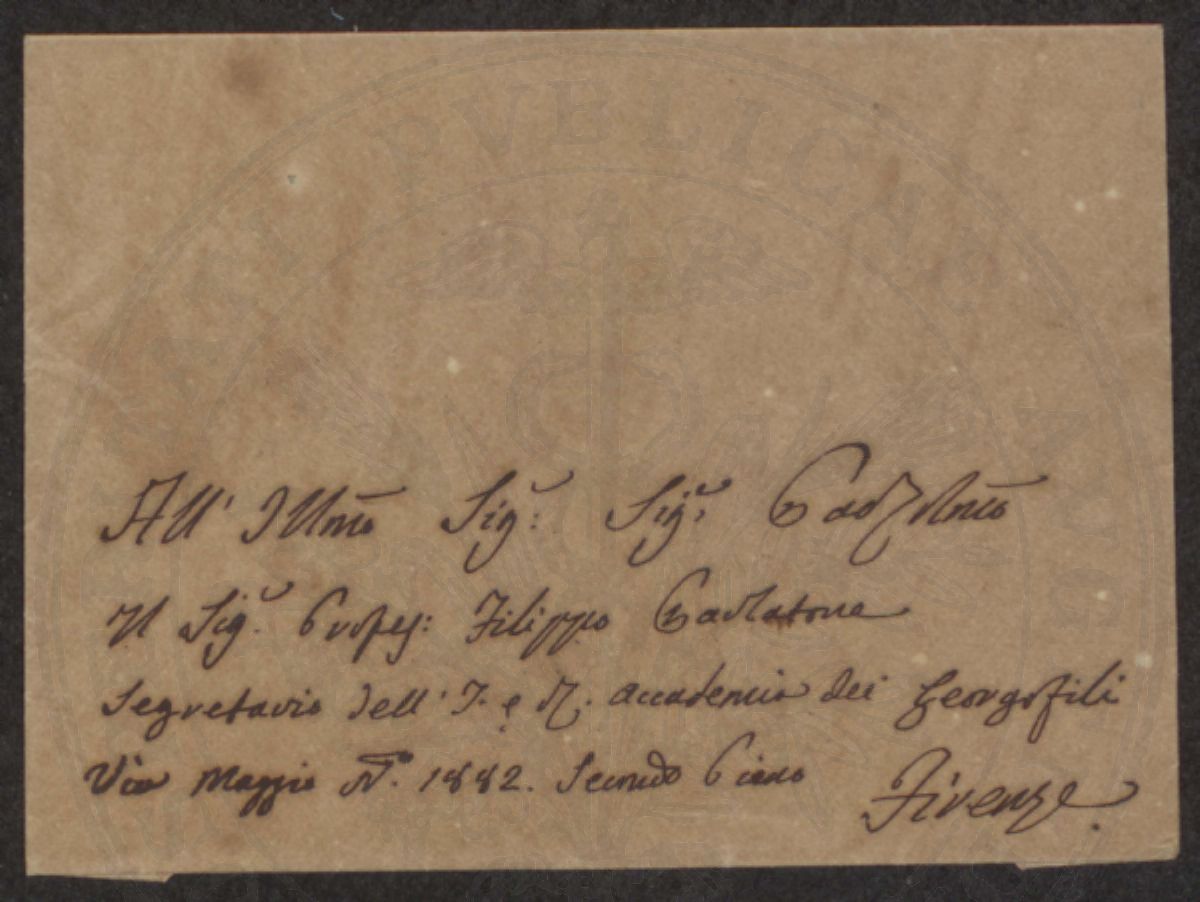 PVBLICAE
All' Illmo Sig.r Sig.r Padrone
Il Sig.r Profes: Filippo Parlatore
Segretario dell' I. e R. Accademia dei Georgofili
Via Maggio No. 1882. Secondo Piano
Firenze.